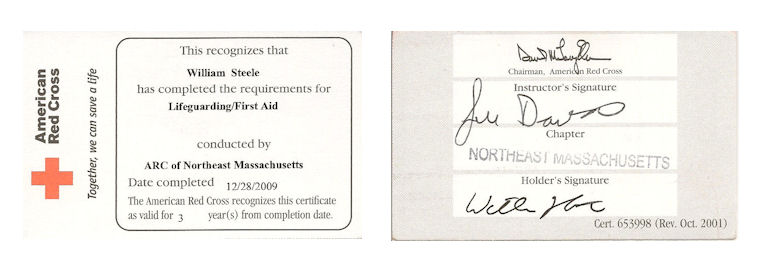 American
Red Cross
Together, we can save a life
This recognizes that
William Steele
has completed the requirements for
Lifeguarding/First Aid
conducted by
ARC of Northeast Massachusetts
Date completed 12/28/2009
The American Red Cross recognizes this certificate
as valid for 3 year(s) from completion date.
Chairman, American Red Cross
Instructor's Signature
Chapter
NORTHEAST MASSACHUSETTS
Holder's Signature
Cert. 653998 (Rev. Oct. 2001)